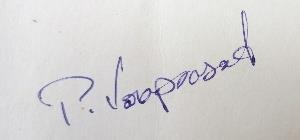 P. Varaprasad